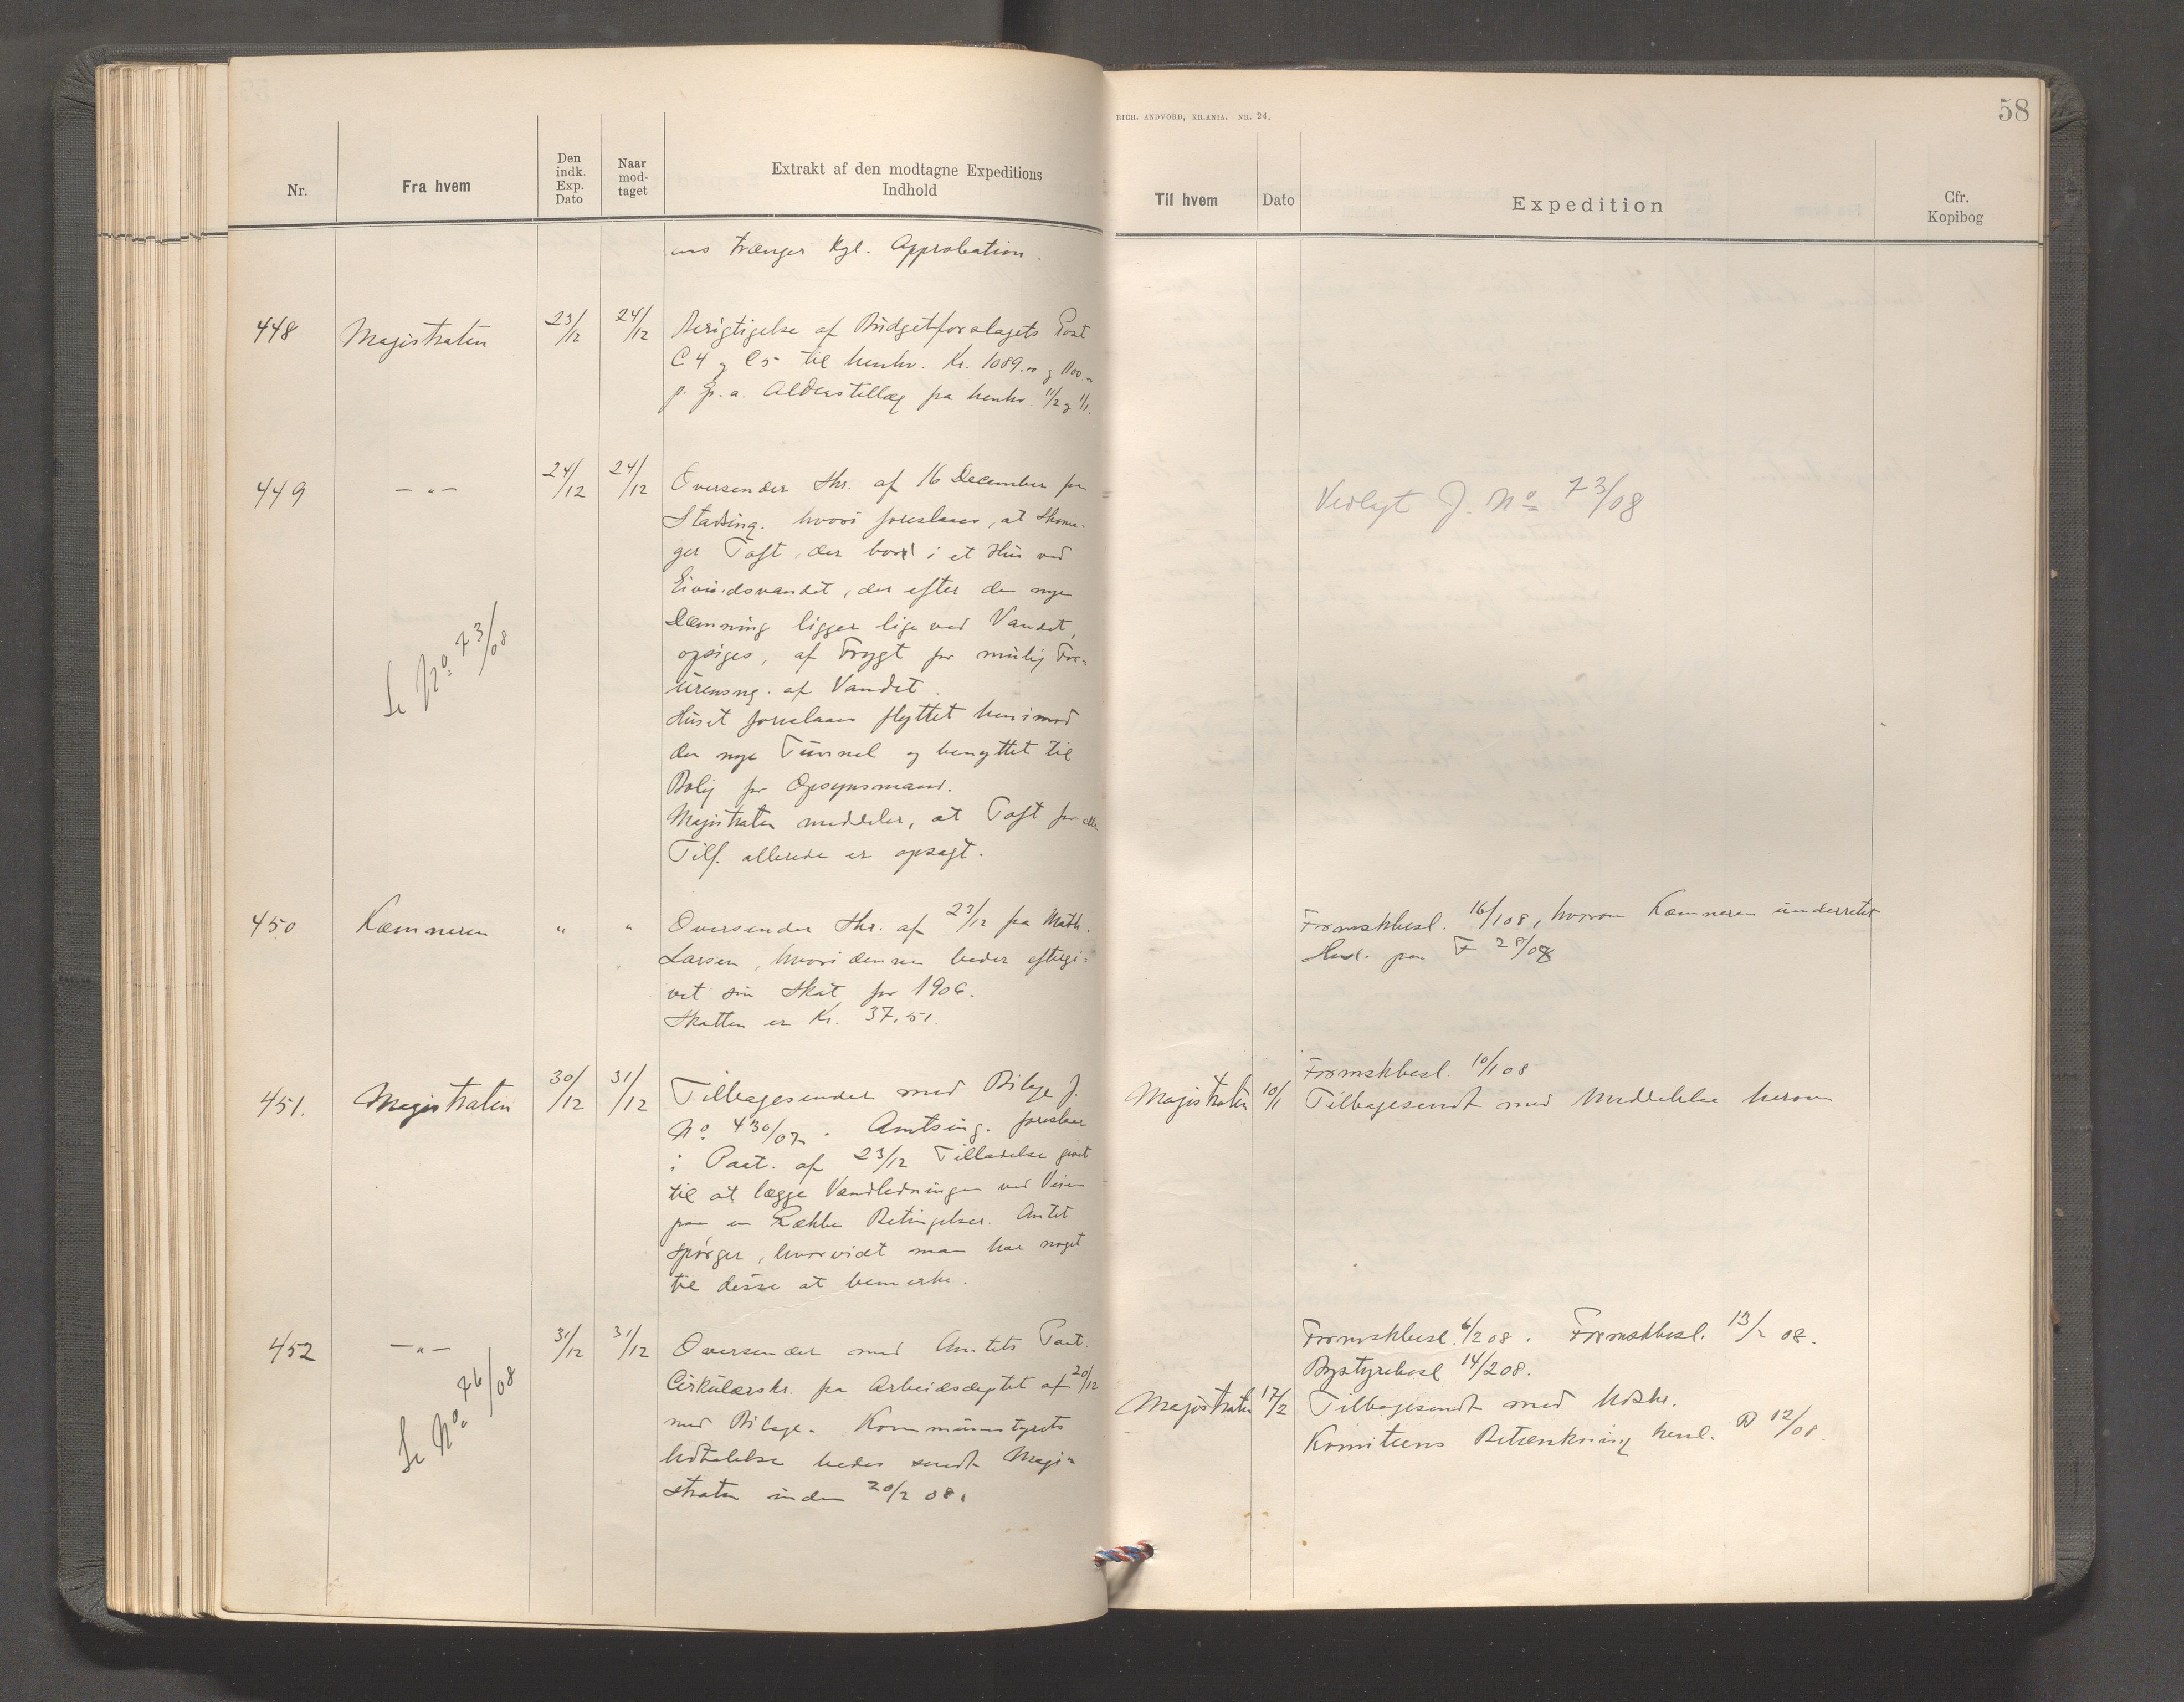 RICH. ANDVORD, KR.ANIA. NR. 24.
58
Nr.
Fra hvem
Den indk. Exp. Dato
Naar mod-taget
Extrakt af den modtagne Expeditions Indhold
Til hvem
Dato
Expedition
Cfr. Kopibog
trænger Kgl. Approbation.
448 Magistraten 23/12 24/12 Berigtigelse af Budgetforslagets Post
C 4 og C 5 til henhv. Kr. 1089.00 og 1100.00
p. Gr. a. Alderstillæg fra henhv. 1/2 og 1/1.
449 —"— 24/12 24/12 Oversender Skr. af 16 December fra
Stadsing. hvori foreslaaes, at Skoma-
ger Toft, der bor i et Hus ved
Eivindsvandet, der efter den nye
Dæmning ligger lige ved Vandet,
opsiges, af Frygt for mulig For-
urensng. af Vandet.
Huset foreslaaes flyttet henimod
den nye Tunnel og benyttet til
Bolig for Opsynsmand.
Magistraten meddeler, at Toft for alle
Tilf. allerede er opsagt.
Se No. 73/08
Vedlagt J. No 73/08
450 Kæmneren " " Oversender Skr. af 23/12 fra Math.
Larsen, hvori denne beder eftergi-
vet sin Skat for 1906.
Skatten er Kr. 37.51.
Formskbesl. 16/1 08, hvorom Kæmneren underrettet
Henl. paa F 28/08
451. Magistraten 30/12 31/12 Tilbagesender med Bilage J.
No. 430/07. Amtsing. foreslaar
i Paat. af 23/12 Tilladelse givet
til at lægge Vandledningen ved Veien
paa en Række Betingelser. Amtet
spørger, hvorvidt man har noget
til disse at bemerke.
Formskbesl. 10/1 08
Magistraten 10/1 Tilbagesendt med Meddelelse herom
452 —"— 31/12 31/12 Oversender med Amtets Paat.
Cirkulærskr. fra Arbeidsdeptet af 20/12
med Bilage. Kommunestyrets
Udtalelse bedes sendt Magi-
straten inden 20/2 08.
Se No. 76/08
Formskbesl. 6/2 08. Formskbesl. 13/2 08.
Bystyrebesl 14/2 08.
Magistraten 17/2 Tilbagesendt med Udskr.
Komiteens Betænkning henl. B 12/08.